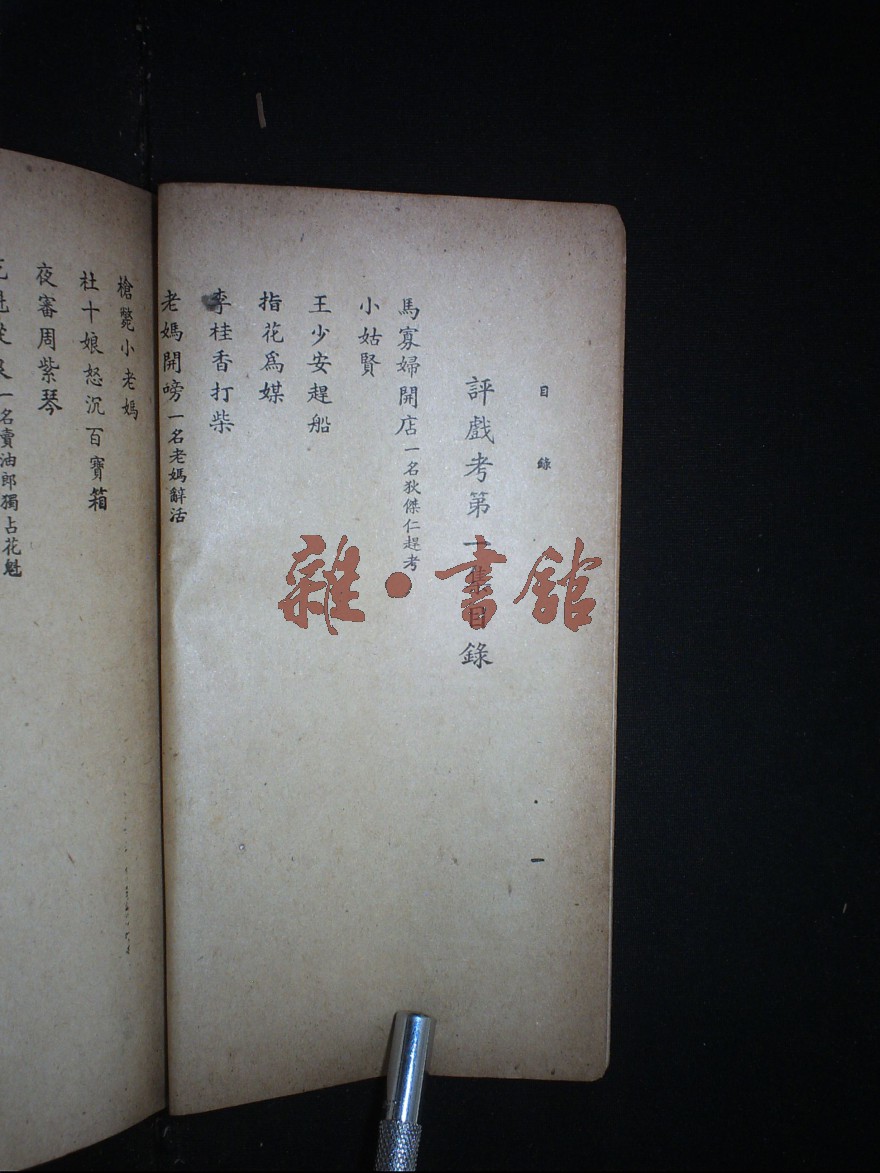 目錄
一
評戲考第一集目錄
馬寡婦開店 一名狄傑仁趕考
小姑賢
王少安趕船
指花爲媒
李桂香打柴
老媽開嗙 一名老媽辭活
槍斃小老媽
杜十娘怒沉百寶箱
夜審周紫琴
一名賣油郎獨占花魁
雜·書館